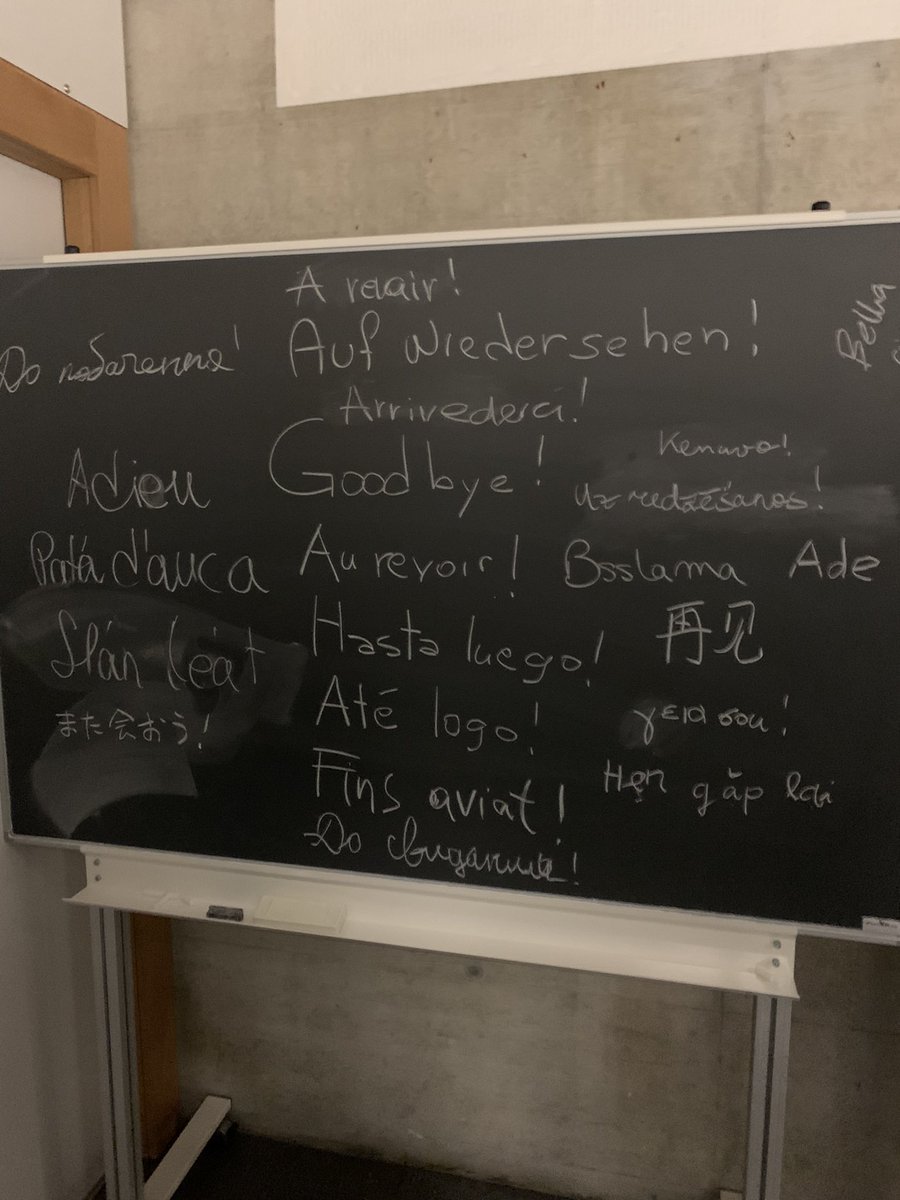 A revair!
До побачення!
Auf Wiedersehen!
Arrivederci!
Kenavo!
Adieu
Goodbye!
Uz redzēšanos!
Patá d'auca
Au revoir!
Bsslama
Ade
Slán leat
Hasta luego!
再见
また会おう!
Até logo!
γεια σου!
Fins aviat!
Hẹn găp lại
До свидания!